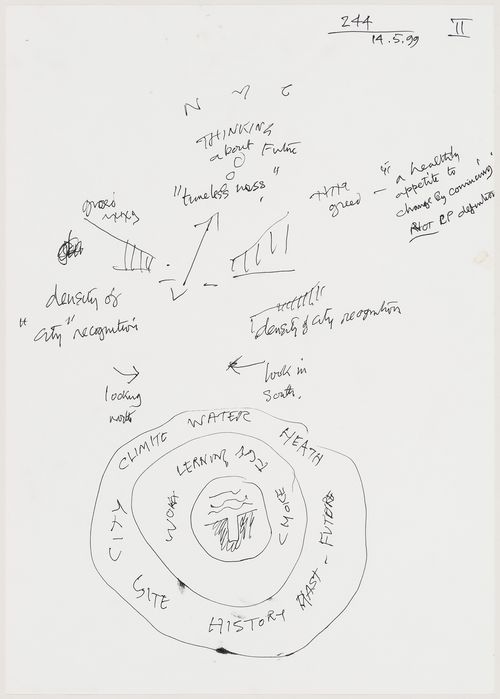 244
14.5.99
II
N Y C
THINKING
about Future
"timelessness"
greed
"a healthy
appetite to
change by convincing"
NOT CP definition
density of
"city" recognition
density of city recognition
looking
north
look in
South.
CLIMITE WATER HEATH
CITY
SITE
HISTORY
PAST - FUTURE
LERNING
WORK